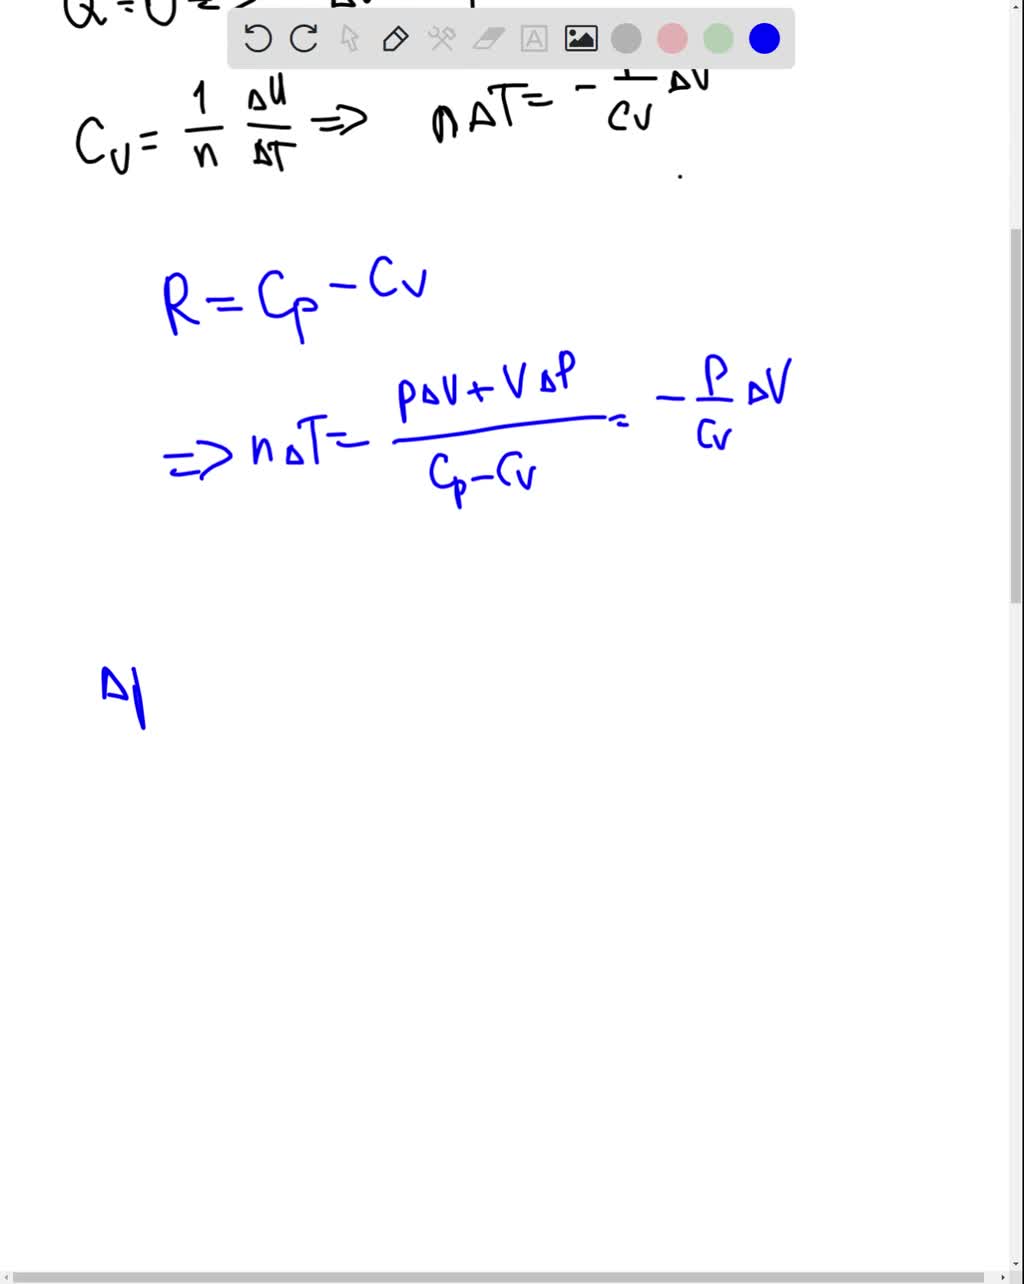 Q = 0 =>
C_V = 1/n ΔU/ΔT => nΔT = - P/C_V ΔV
R = C_p - C_V
=> nΔT = (pΔV + VΔP)/(C_p - C_V) = - P/C_V ΔV
Δ